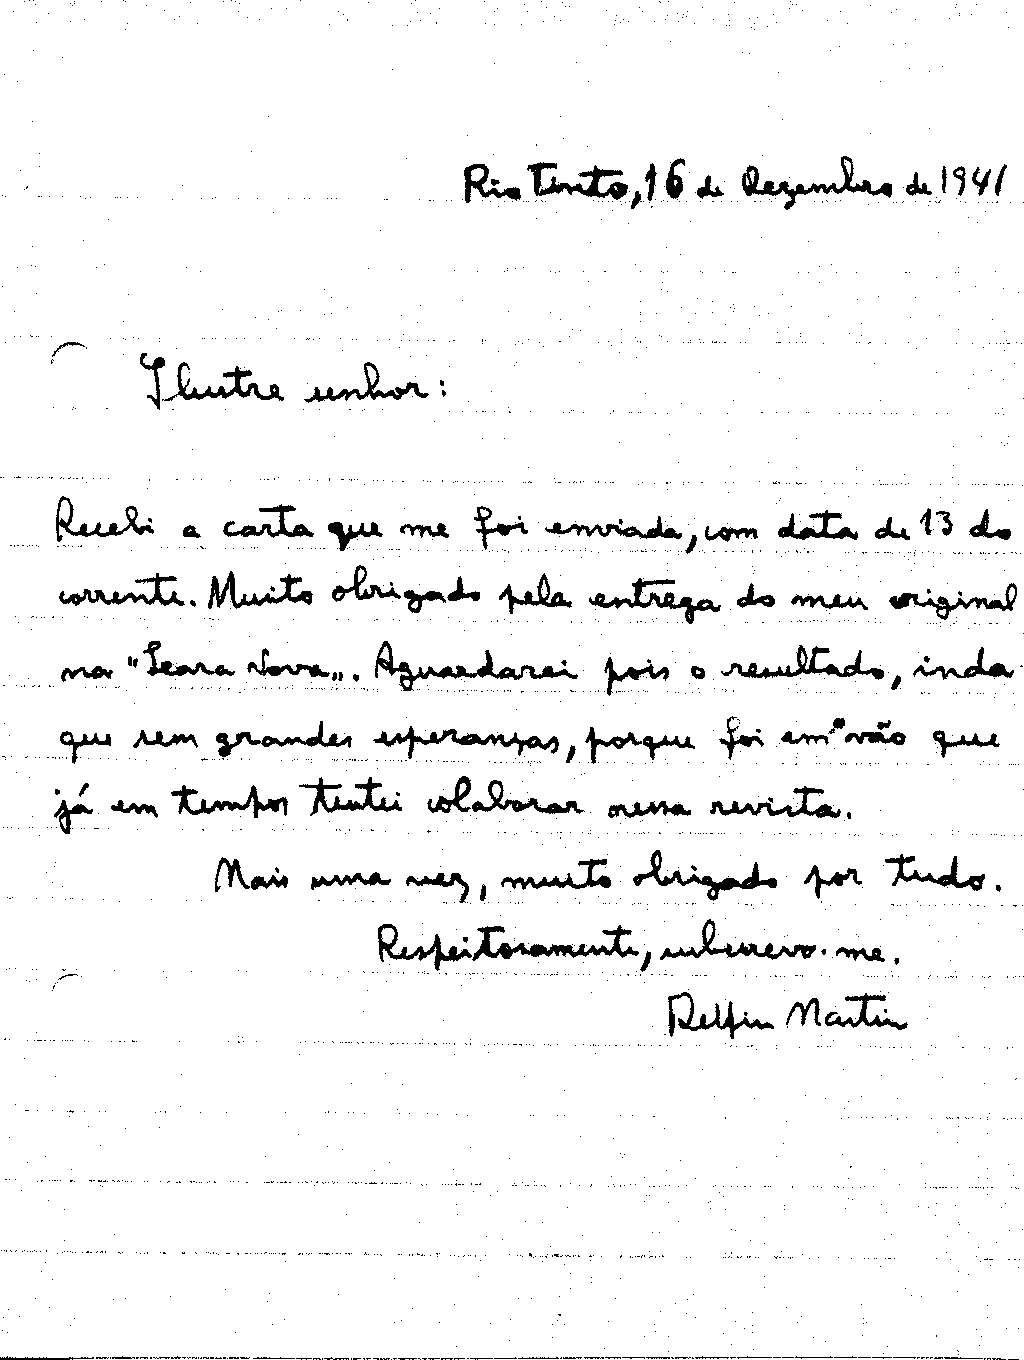 Rio Tinto, 16 de Dezembro de 1941
Ilustre senhor:
Recebi a carta que me foi enviada, com data de 13 do
corrente. Muito obrigado pela entrega do meu original
na "Seara Nova„. Aguardarei pois o resultado, inda
que sem grandes esperanças, porque foi em vão que
já em tempos tentei colaborar nessa revista.
Mais uma vez, muito obrigado por tudo.
Respeitosamente, subscrevo-me.
Delfin Martin